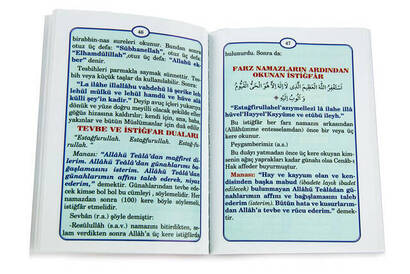 46
birabbin-nas sureleri okunur. Bundan sonra
otuz üç defa: "Sübhanellah", otuz üç defa:
"Elhamdülillah", otuz üç defa: "Allâhü ek-
ber" denir.
Tesbihleri parmakla saymak sünnettir. Tes-
bih veya küçük taşlar da kullanılabilir. Sonra:
"La ilâhe illallâhu vahdehû lâ şerike leh
lehül mülkü ve lehül hamdü ve hüve alâ
külli şey'in kadir." Deyip avuç içleri yukarıya
dönük ve yüze doğru meyilli olacak şekilde eller
göğüs hizasına kaldırılır, kendi için, ana, baba,
yakınlar ve bütün Müslümanlar için dua edilir.
TEVBE VE İSTİĞFAR DUALARI
"Estağfurullah. Estağfurullah. Estağ-
furullah."
Manası: "Allâhü Teâlâ'dan mağfiret di-
lerim. Allâhü Teâlâ'dan, günahlarımın ba-
ğışlamasını isterim. Allâhü Teâlâ'dan
günahlarımın affını taleb ederek, niyaz
ederim," demektir. Günahlarından tevbe ede-
cek kimse bol bol bu cümleyi, söylemelidir. Her
namazdan sonra (100) kere böyle söylemeli,
istiğfar etmelidir.
Sevbân (r.a.) şöyle demiştir:
-Resûlüllah (s.a.v.) namazını bitirdikten, se-
lam verdikten sonra Allâh'a üç kere istiğfarda
47
bulunurdu. Sonra da:
FARZ NAMAZLARIN ARDINDAN
OKUNAN İSTİĞFÂR
اَسْتَغْفِرُ اللهَ الْعَظِيمَ الَّذِى لَا اِلَهَ اِلَّا هُوَ الْحَيُّ الْقَيُّومُ
وَ اَتُوبُ اِلَيْهِ
"Estağfirullahel'azıymellezi lâ ilahe illâ
hüvel'Hayyel'Kayyûme ve etûbü ileyh."
Bu istiğfar her farz namazın arkasından
(Allâhümme entesselamdan) önce bir veya üç
kere okunur.
Peygamberimiz (s.a.v.)
Bu duayı yatmadan önce üç kere okuyan kim-
senin ağaç yaprakları kadar günahı olsa Cenâb-ı
Hak affeder buyurmuştur.
Manası: "Hay ve kayyum olan ve ken-
disinden başka mabud (ibadete layık ibadet
edilecek) bulunmayan Allâhü Teâlâdan gü-
nahlarımın affını ve bağışlamasını taleb
ederim (isterim). Bütün hata ve kusurlarım-
dan Allâh'a tevbe ve rücu ederim." demek-
tir.